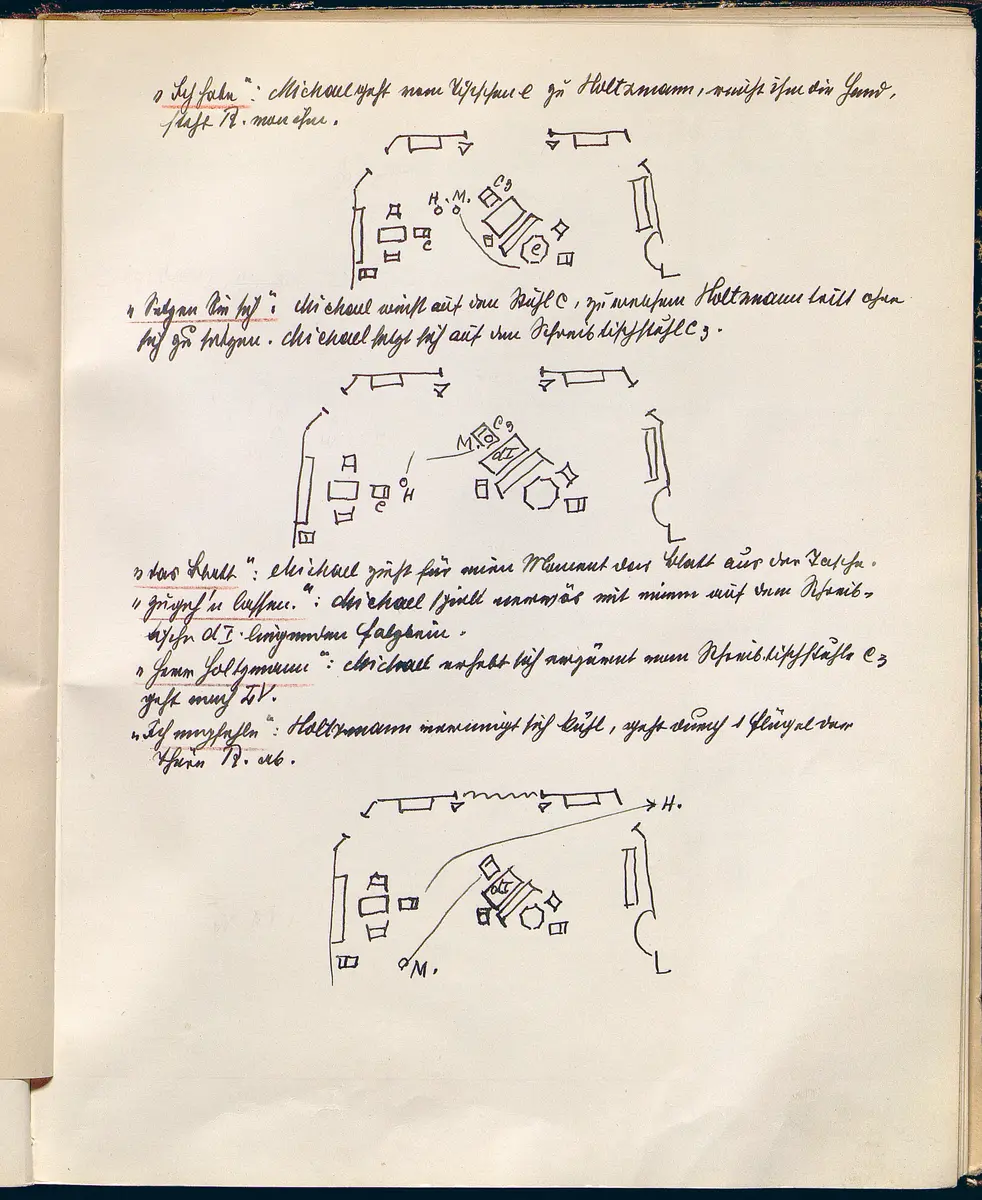 „Ich habe": Michael geht vom Tischchen e zu Holtzmann, reicht ihm die Hand,
steht R. von ihm.
C3
H. M.
C
e
„Setzen Sie sich": Michael weist auf den Stuhl C, zu welchem Holtzmann tritt ohne
sich zu setzen. Michael setzt sich auf den Schreibtischstuhl C3.
C3
M.
dI
H
C
„das Blatt": Michael zieht für einen Moment das Blatt aus der Tasche.
„zugeh'n lassen.": Michael spielt nervös mit einem auf dem Schreib-
tische dI. liegenden Falzbein.
„Herr Holtzmann": Michael erhebt sich erzürnt vom Schreibtischstuhle C3
geht nach IV.
„Ich empfehle": Holtzmann verneigt sich kühl, geht durch 1 Flügel der
Thüre R. ab.
H.
dI
M.